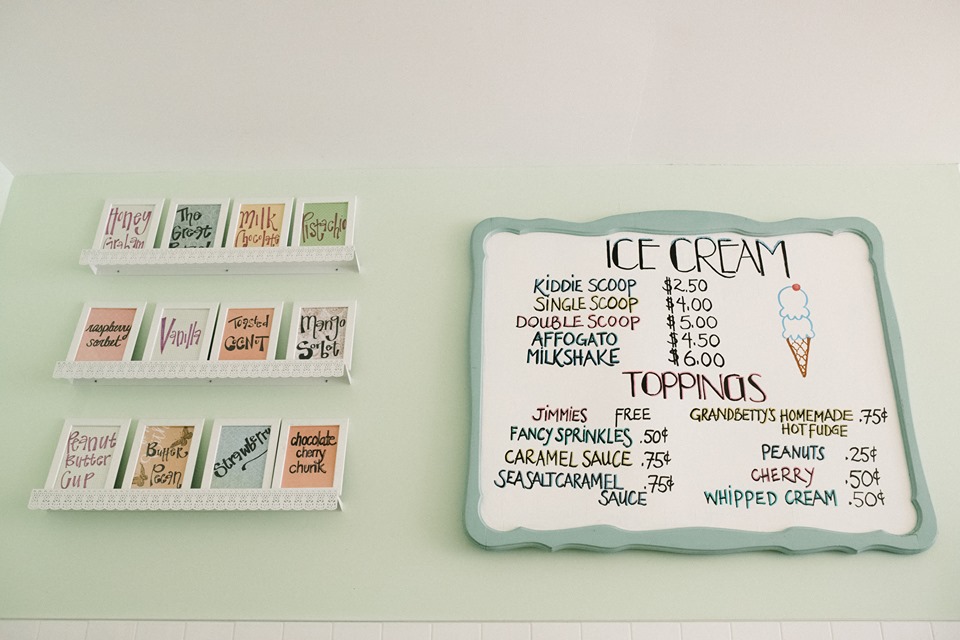 Honey
Graham
The
Great
Milk
Chocolate
Pistachio
raspberry
sorbet
Vanilla
Toasted
Coconut
Mango
Sorbet
Peanut
Butter
Cup
Butter
Pecan
Strawberry
chocolate
cherry
chunk
ICE CREAM
KIDDIE SCOOP $2.50
SINGLE SCOOP $4.00
DOUBLE SCOOP $5.00
AFFOGATO $4.50
MILKSHAKE $6.00
TOPPINGS
JIMMIES FREE
FANCY SPRINKLES .50¢
CARAMEL SAUCE .75¢
SEA SALT CARAMEL
SAUCE .75¢
GRANDBETTY'S HOMEMADE .75¢
HOT FUDGE
PEANUTS .25¢
CHERRY .50¢
WHIPPED CREAM .50¢